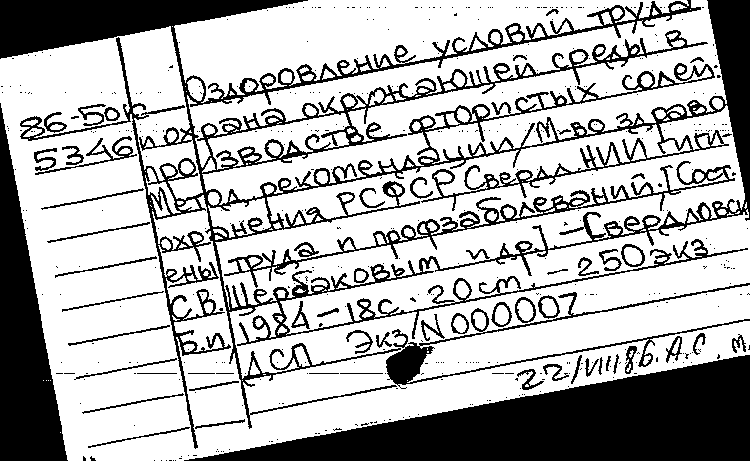 Оздоровление условий труда
86-50к
и охрана окружающей среды в
5346
производстве фтористых солей:
Метод. рекомендации/М-во здраво
охранения РСФСР, Свердл. НИИ гиги-
ены труда и профзаболеваний; [Сост.
С.В. Щербаковым и др]. - [Свердловск
Б.и., 1984. - 18с.; 20cm. - 250экз
ДСП. Экз/N000007
22/VIII86. А.С. м.